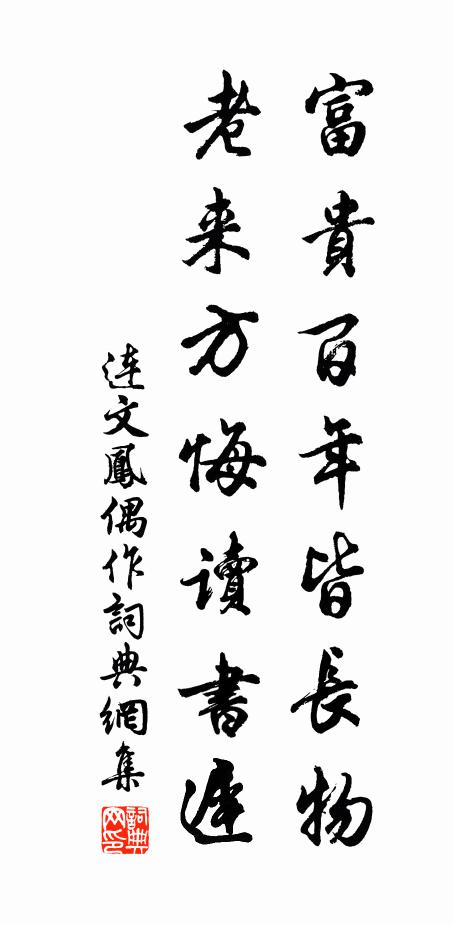 富貴百年皆長物
老来方悔讀書遲
連文鳳偶作詞典網集
詞典網印